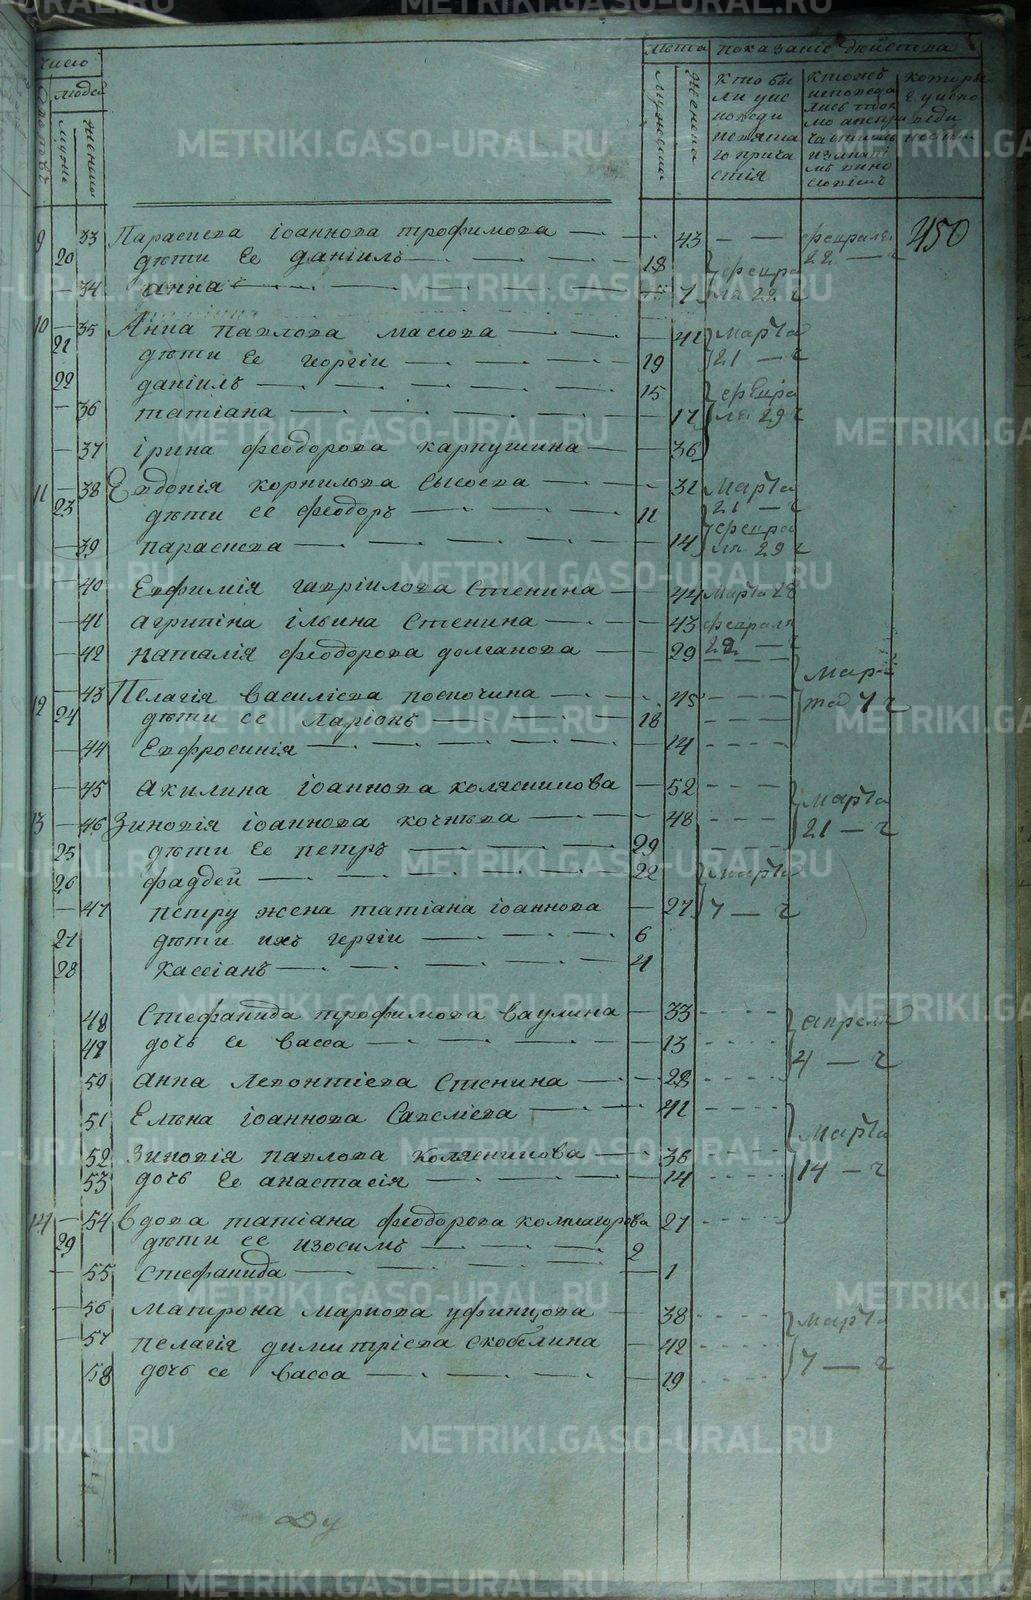 число
людей
мужс
женска
лѣта
мужска
женска
показаніе дѣйства
кто бы
ли у ис
поведи
и святы
го прича
стія
кто жъ
исповеда
450
9 33 Параскева Іоаннова трофимова 43 февраля
20 дѣти Ее даніилъ 18 22 — ч
34 анна 7 февра
ля 22 ч
10 35 Анна павлова маслова 41 марта
21 дѣти Ее георгіи 19 21 — ч
22 даніилъ 15 февра
36 татіана 17 ля 29 ч
37 ірина феодорова карпушина 36
11 38 Евдокія корнилова сысоева 31 Марта
23 дѣти ее феодоръ 11 21 — ч
39 параскева 14 февра
ля 29 ч
40 Евфимія гавріилова Стенина 44 марта 28
41 агрипіна ільина Стенина 43 февраля
42 наталія феодорова долганова 29 22 — ч
12 43 Пелагія василіева поскочина 45 мар
24 дѣти ее ларіонъ 18 та 7 ч
44 Евфросинія 14
45 акилина іоаннова колясникова 52 марта
13 46 Зиновія іоаннова кочнева 48 21 — ч
25 дѣти Ее петръ 29
26 фаддей 22 марта
47 петру жена татіана іоаннова 27 7 — ч
27 дѣти ихъ гергіи 6
28 кассіанъ 4
48 Стефанида трофимова ваулина 33 апреля
49 дочь ее васса 13 4 — ч
50 анна леонтіева Стенина 28
51 Елѣна іоаннова Савеліева 41 Марта
52 Зиновія павлова колясникова 36 14 — ч
53 дочь Ее анастасія 14
14 54 вдова татіана феодорова колмагорова 27
29 дѣти ее изосимъ 2
55 стефанида 1
56 матрона маркова уфинцова 38 марта
57 пелагія димитріева скобелина 42 7 — ч
58 дочь ее васса 19
METRIKI.GASO-URAL.RU